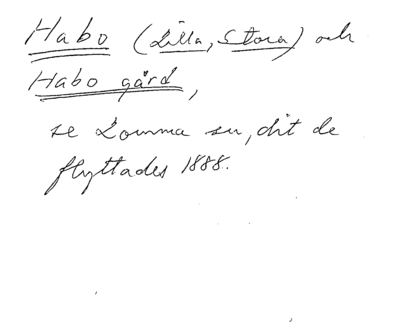 Habo (Lilla, Stora) och
Habo gård,
se Lomma sn, dit de
flyttades 1888.